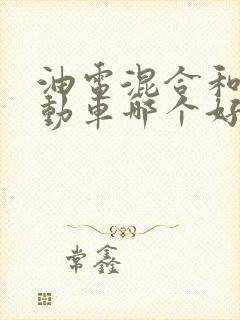 油電混合和
動車哪个好
常鑫